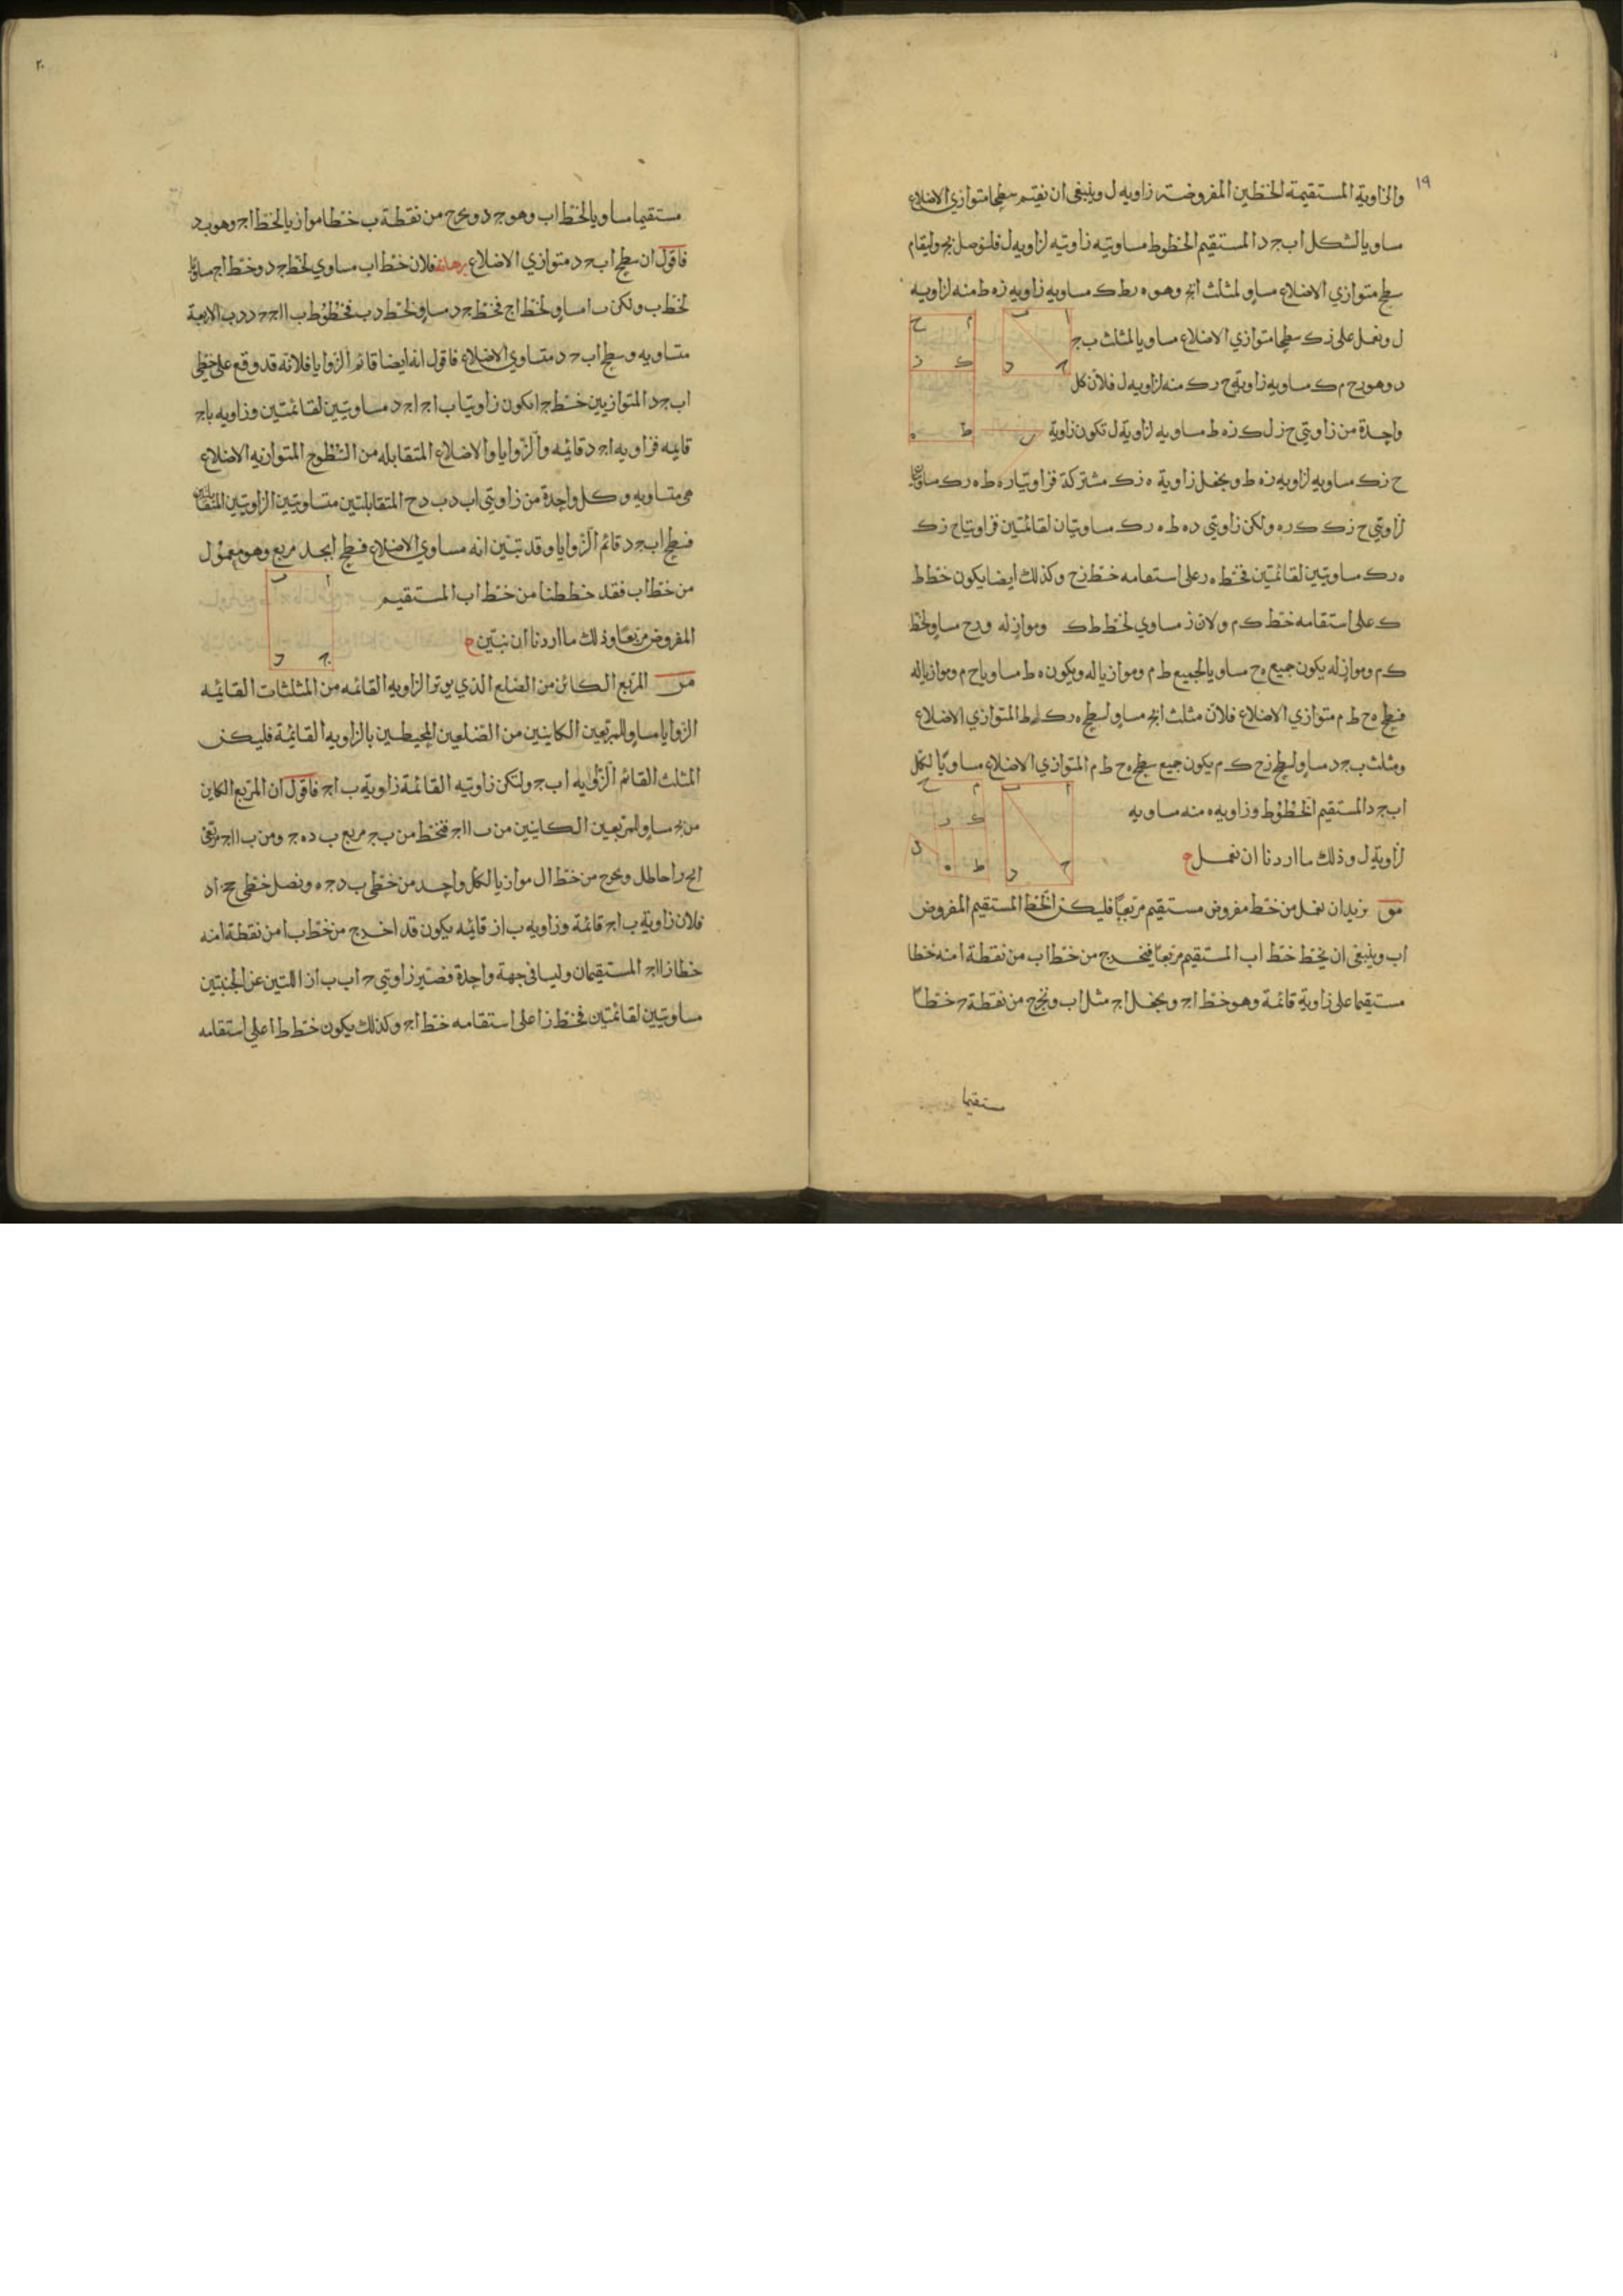 ١٩
والزاوية المستقيمة الخطين المفروضة زاويه ل وينبغي ان نقيم سطحا متوازي الاضلاع
مساويا لشكل اب ج د المستقيم الخطوط مساويته زاويته لزاويه ل فلنوصل بج وليقام
سطح متوازي الاضلاع مساو لمثلث ابج وهو ه ر ط ك مساويه زاويه زه ط منه لزاويه
ل ونعمل على زك سطحا متوازي الاضلاع مساويا لمثلث ب ج
د وهو رح م ك مساويه زاوية ح رك منه لزاويه ل فلان كل
واحدة من زاويتي ح ز ك زه ط مساويه لزاوية ل تكون زاوية
ح زك مساويه لزاويه زه ط ونجعل زاوية ه زك مشتركة فزاويتا ره ط ه رك
لزاويتي ح زك ك ره ولكن زاويتي ره ط ه رك مساويتان لقائمتين فزاويتا ح زك
ه رك مساويتين لقائمتين فخط ه ر على استقامه خط زح وكذلك ايضا يكون خط ط
ك على استقامه خط ك م ولان ه ز مساوي لخط ط ك وموازٍ له ورح مساو لخط
ك م وموازٍ له يكون جميع ه ح مساويا لجميع ط م وموازيا له ويكون ه ط مساويا ح م وموازيا له
فسطح ه ح ط م متوازي الاضلاع فلان مثلث ابج مساو لسطح ه رك ط المتوازي الاضلاع
ومثلث ب ج د مساو لسطح زح ك م يكون جميع سطح ه ح ط م المتوازي الاضلاع مساويًا لشكل
اب ج د المستقيم الخطوط وزاويه ه منه مساويه
لزاوية ل وذلك ما اردنا ان نعمل
مو نريد ان نعمل من خط مفروض مستقيم مربعًا فليكن الخط المستقيم المفروض
اب وينبغي ان يخط خط اب المستقيم مربعًا فيخرج من خط اب من نقطة ا منه خطا
مستقيما على زاوية قائمة وهو خط اج ونجعل اج مثل اب ونخرج من نقطة ج خطًا
مستقيما
٢٠
مستقيما مساويا لخط اب وهو ج د ونخرج من نقطة ب خطا موازيا لخط اج وهو ب د
فاقول ان سطح اب ج د متوازي الاضلاع برهانه فلان خط اب مساوي لخط ج د وخط اج
لخط ب ولكن ب ا مساو لخط اج فخط ج د مساو لخط د ب فخطوط ب ا اج ج د د ب الاربعة
متساويه وسطح اب ج د متساوي الاضلاع فاقول انه ايضا قائم الزوايا فلانه قد وقع على خطي
اب ج د المتوازيين خط ج ا تكون زاويتا ب اج اج د مساويتين لقائمتين وزاويه باج
قايمه فزاويه اج د قائمه والزوايا والاضلاع المتقابله من السطوح المتوازيه الاضلاع
هي متساويه وكل واحدة من زاويتي اب د ب د ج المتقابلتين متساويتين الزاويتين
فسطح اب ج د قائم الزوايا وقد تبين انه مساوي الاضلاع فسطح ابجد مربع وهو معمول
من خط اب فقد خططنا من خط اب المستقيم
المفروض مربعًا وذلك ما اردنا ان نبين
مز المربع الكائن من الضلع الذي يوتر الزاويه القائمه من المثلثات القائمه
الزوايا مساو للمربعين الكاينين من الضلعين المحيطين بالزاويه القائمة فليكن
المثلث القائم الزاويه اب ج ولتكن زاويته القائمة زاوية ب اج فاقول ان المربع الكاين
من بج مساو للمربعين الكاينين من ب ا اج فنخط من ب ج مربع ب د ه ج ومن ب ا اج مربعي
ونخرج من خط ال موازيا لكل واحد من خطي ب د ج ه ونصل خطي ج ز اد
فلان زاوية ب اج قائمة وزاويه ب از قائمه يكون قد اخرج من خط ب ا من نقطة ا منه
خطا زا اج المستقيمان وليسا في جهة واحدة فصير زاويتي ج اب ب از اللتين عن الجنبتين
مساويتين لقائمتين فخط زا على استقامه خط اج وكذلك يكون خط ط ا على استقامه